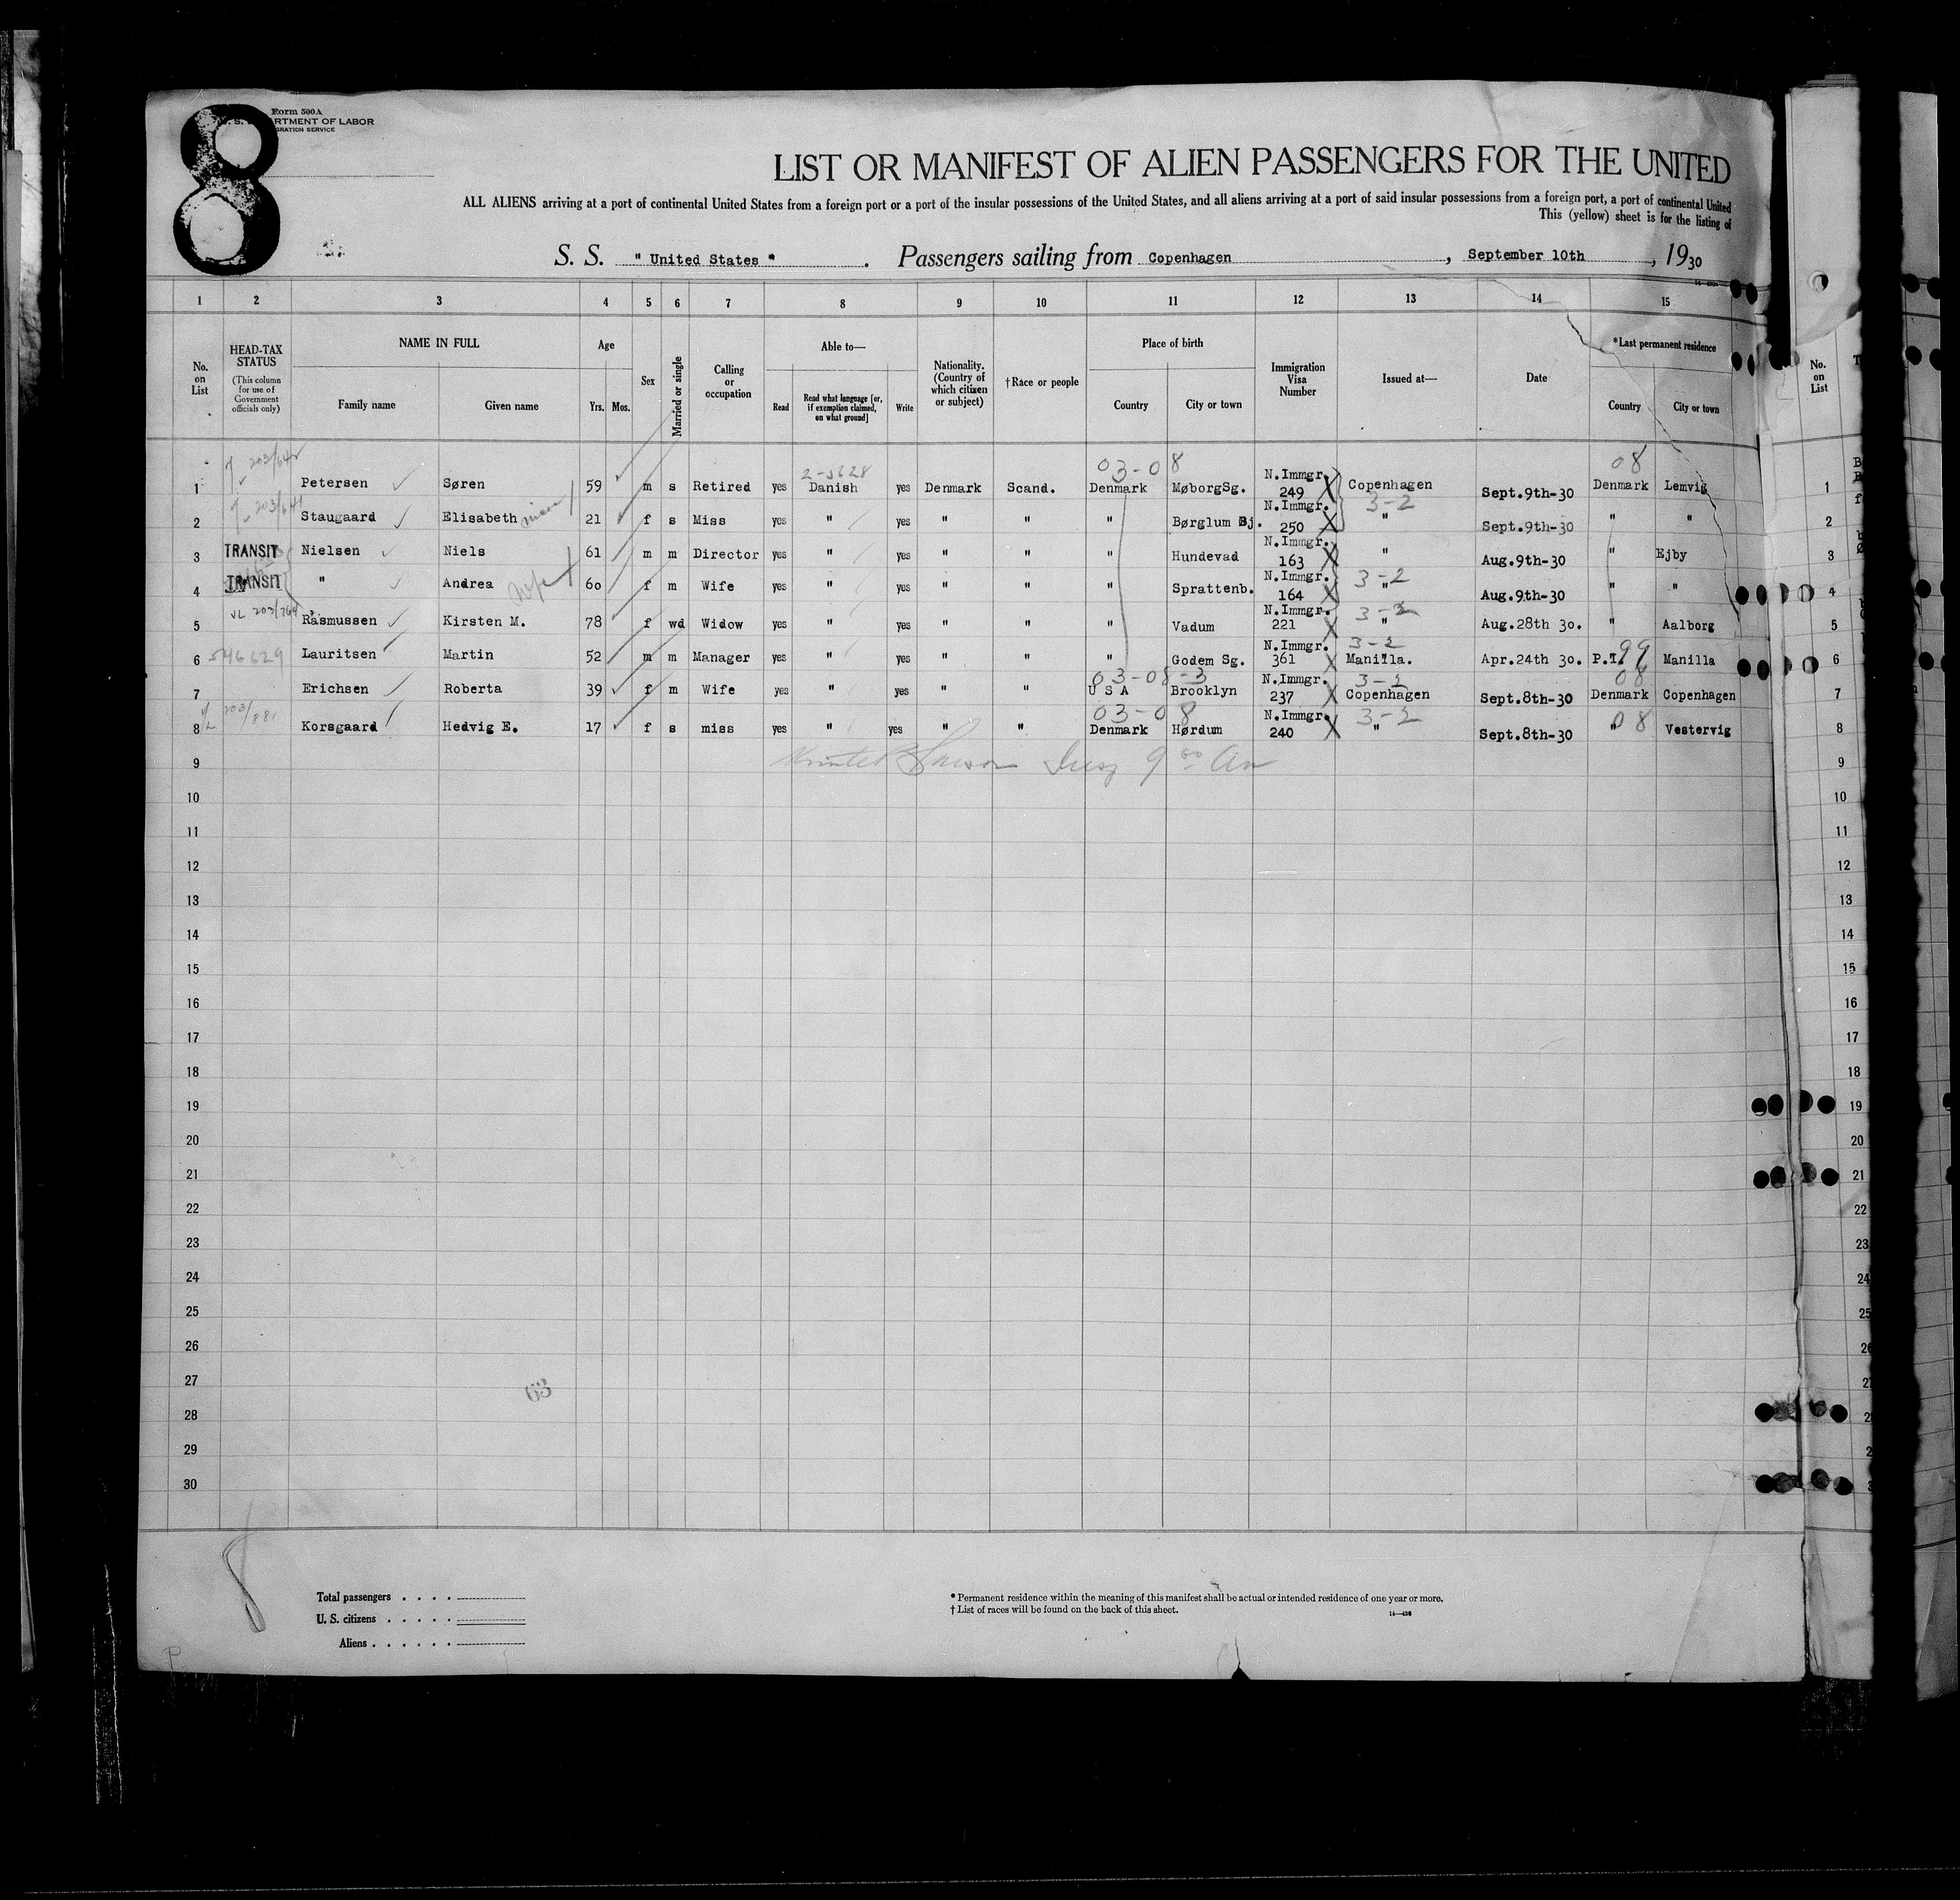 8
Form 500A
U. S. DEPARTMENT OF LABOR
IMMIGRATION SERVICE
LIST OR MANIFEST OF ALIEN PASSENGERS FOR THE UNITED
ALL ALIENS arriving at a port of continental United States from a foreign port or a port of the insular possessions of the United States, and all aliens arriving at a port of said insular possessions from a foreign port, a port of continental United
This (yellow) sheet is for the listing of
S. S. " United States " . Passengers sailing from Copenhagen , September 10th , 1930
1 2 3 4 5 6 7 8 9 10 11 12 13 14 15
No. on List
HEAD-TAX STATUS (This column for use of Government officials only)
NAME IN FULL
Family name Given name
Age
Yrs. Mos.
Sex
Married or single
Calling or occupation
Able to—
Read Read what language [or, if exemption claimed, on what ground] Write
Nationality. (Country of which citizen or subject)
†Race or people
Place of birth
Country City or town
Immigration Visa Number
Issued at—
Date
*Last permanent residence
Country City or town
No. on List
203/642 2-5628 03-08 08
1 Petersen Søren 59 m s Retired yes Danish yes Denmark Scand. Denmark MøborgSg. N.Immgr. 249 Copenhagen Sept.9th-30 Denmark Lemvig 1
203/641 3-2
2 Staugaard Elisabeth 21 f s Miss yes " yes " " " Børglum Bj. N.Immgr. 250 " Sept.9th-30 " " 2
3 TRANSIT Nielsen Niels 61 m m Director yes " yes " " " Hundevad N.Immgr. 163 " Aug.9th-30 " Ejby 3
4 TRANSIT " Andrea wife 60 f m Wife yes " yes " " " Sprattenb. N.Immgr. 164 3-2 " Aug.9th-30 " " 4
5 203/764 Rasmussen Kirsten M. 78 f wd Widow yes " yes " " " Vadum N.Immgr. 221 3-2 " Aug.28th 30. " Aalborg 5
6 546629 Lauritsen Martin 52 m m Manager yes " yes " " " Godem Sg. N.Immgr. 361 3-2 Manilla. Apr.24th 30. P.I. 99 Manilla 6
03-08-3 3-2 08
7 Erichsen Roberta 39 f m Wife yes " yes " " U S A Brooklyn N.Immgr. 237 Copenhagen Sept.8th-30 Denmark Copenhagen 7
203/881 03-08 3-2 08
8 Korsgaard Hedvig E. 17 f s miss yes " yes " " Denmark Hørdum N.Immgr. 240 " Sept.8th-30 " Vestervig 8
9 9
10 10
11 11
12 12
13 13
14 14
15 15
16 16
17 17
18 18
19 19
20 20
21 21
22 22
23 23
24 24
25 25
26
27
28
29
30
63
8
Total passengers
U. S. citizens
Aliens
* Permanent residence within the meaning of this manifest shall be actual or intended residence of one year or more.
† List of races will be found on the back of this sheet.
14—430